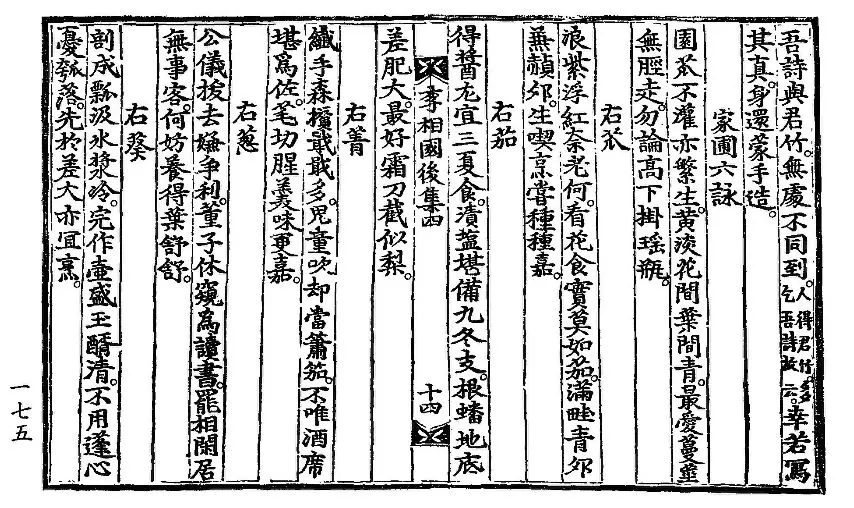 吾詩與君竹。無處不同到。人得君竹多乞吾詩故云。幸若寫
其真。身還蒙手造。
家圃六詠
園苽不灌亦繁生。黃淡花間葉間青。最愛蔓莖
無脛走。勿論高下掛瑤甁。
右苽
浪紫浮紅奈老何。看花食實莫如茄。滿畦青夘
兼赬夘。生喫烹嘗種種嘉。
右茄
得醬尤宜三夏食。漬塩堪備九冬支。根蟠地底
李相國後集四 十四
差肥大。最好霜刀截似梨。
右菁
纖手森攢戢戢多。兒童吹却當簫笳。不唯酒席
堪爲佐。芼切腥羹味更嘉。
右葱
公儀拔去嫌爭利。董子休窺爲讀書。罷相閑居
無事客。何妨養得葉舒舒。
右葵
剖成瓢汲氷漿冷。完作壺盛玉醑清。不用蓬心
憂瓠落。先於差大亦宜烹。
一七五